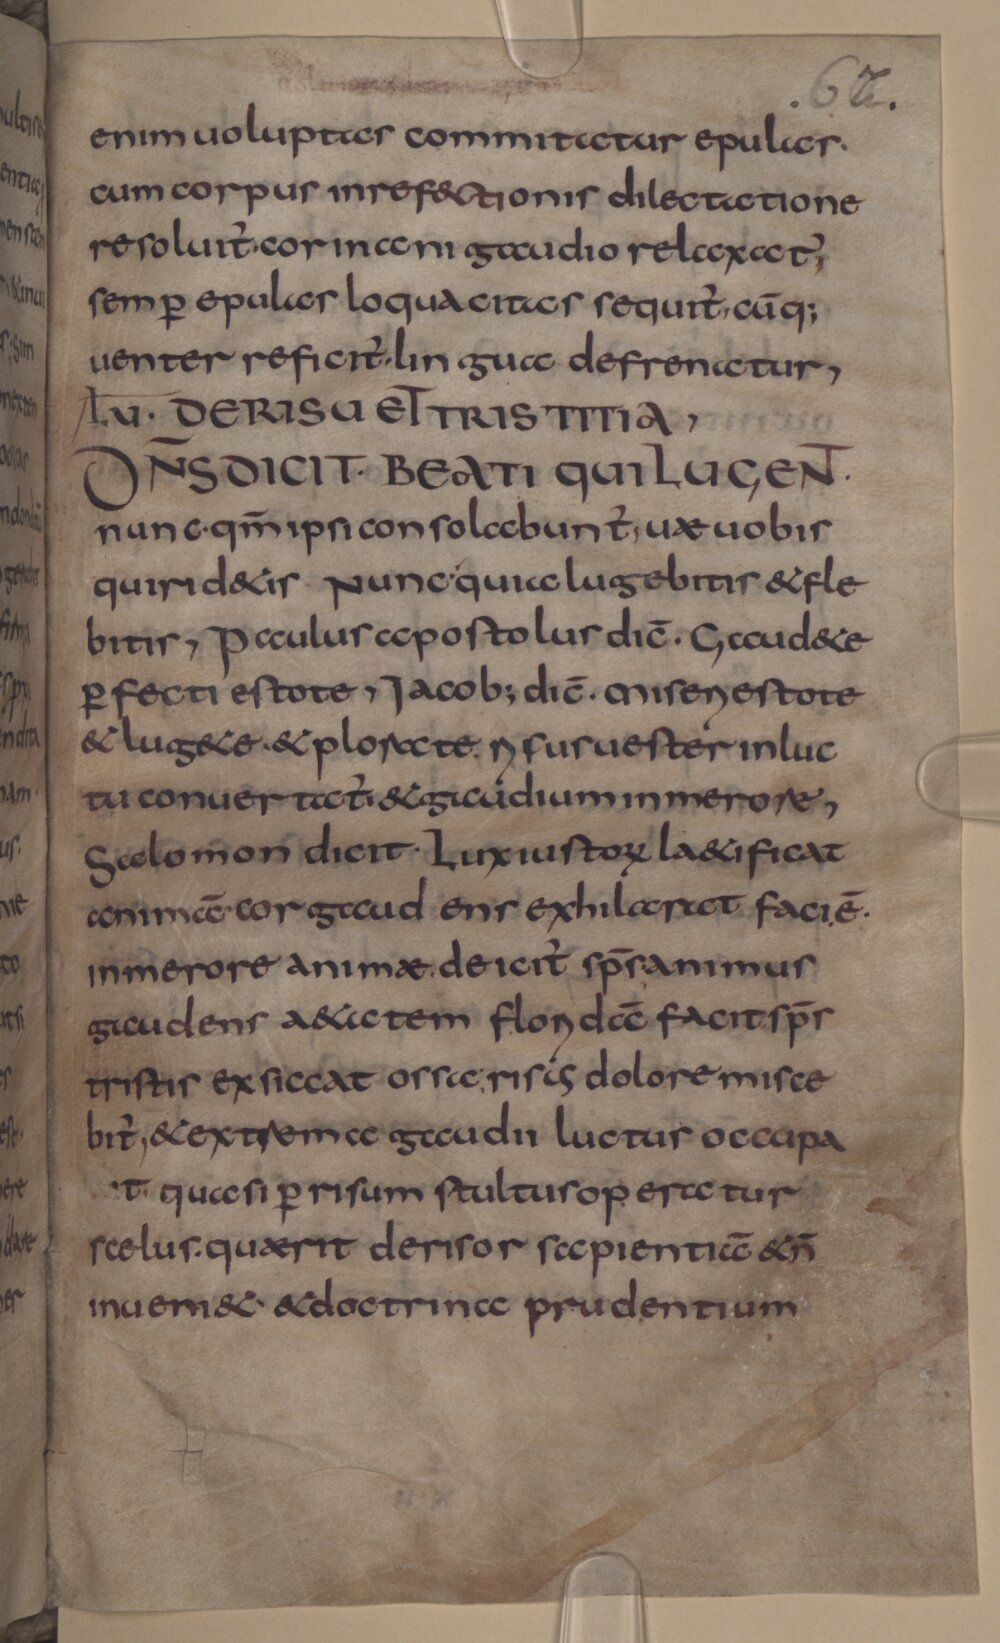 .62.
enim uoluptas commitatur epulas.
cum corpus inref&ctionis dilectatione
resoluit̉. cor inani gaudio relaxat̉,
semꝑ epulas loquacitas sequit̉, cū q;
uenter reficit̉. lingua defrenatur,
LU. DE RISU ET TRISTITIA,
DN̄S DICIT. BEATI QUI LUGENT.
nunc. qm̄ ipsi consolabunt̉, uæ uobis
qui rid&is nunc quia lugebitis & fle
bitis, Paulus apostolus dic̄. Gaud&e
ꝑfecti estote, Jacob; dic̄. Miseri estote
& lug&e. & plorate. risus uester in luc
tu conuertat̉. & gaudium in merore,
Salomon dicit. Lux iustoꝝ la&ificat
animā. cor gaudens exhilarat faciē.
in merore animæ. deicit̉ sp̄s. animus
gaudens a&atem floridā facit. sp̄s
tristis exsiccat ossa, risus dolore misce
bit̉, & extrema gaudii luctus occupa
t. quasi ꝑ risum stultus operatur
scelus. quærit derisor sapientiā & n̄
inueni& & doctrina prudentium